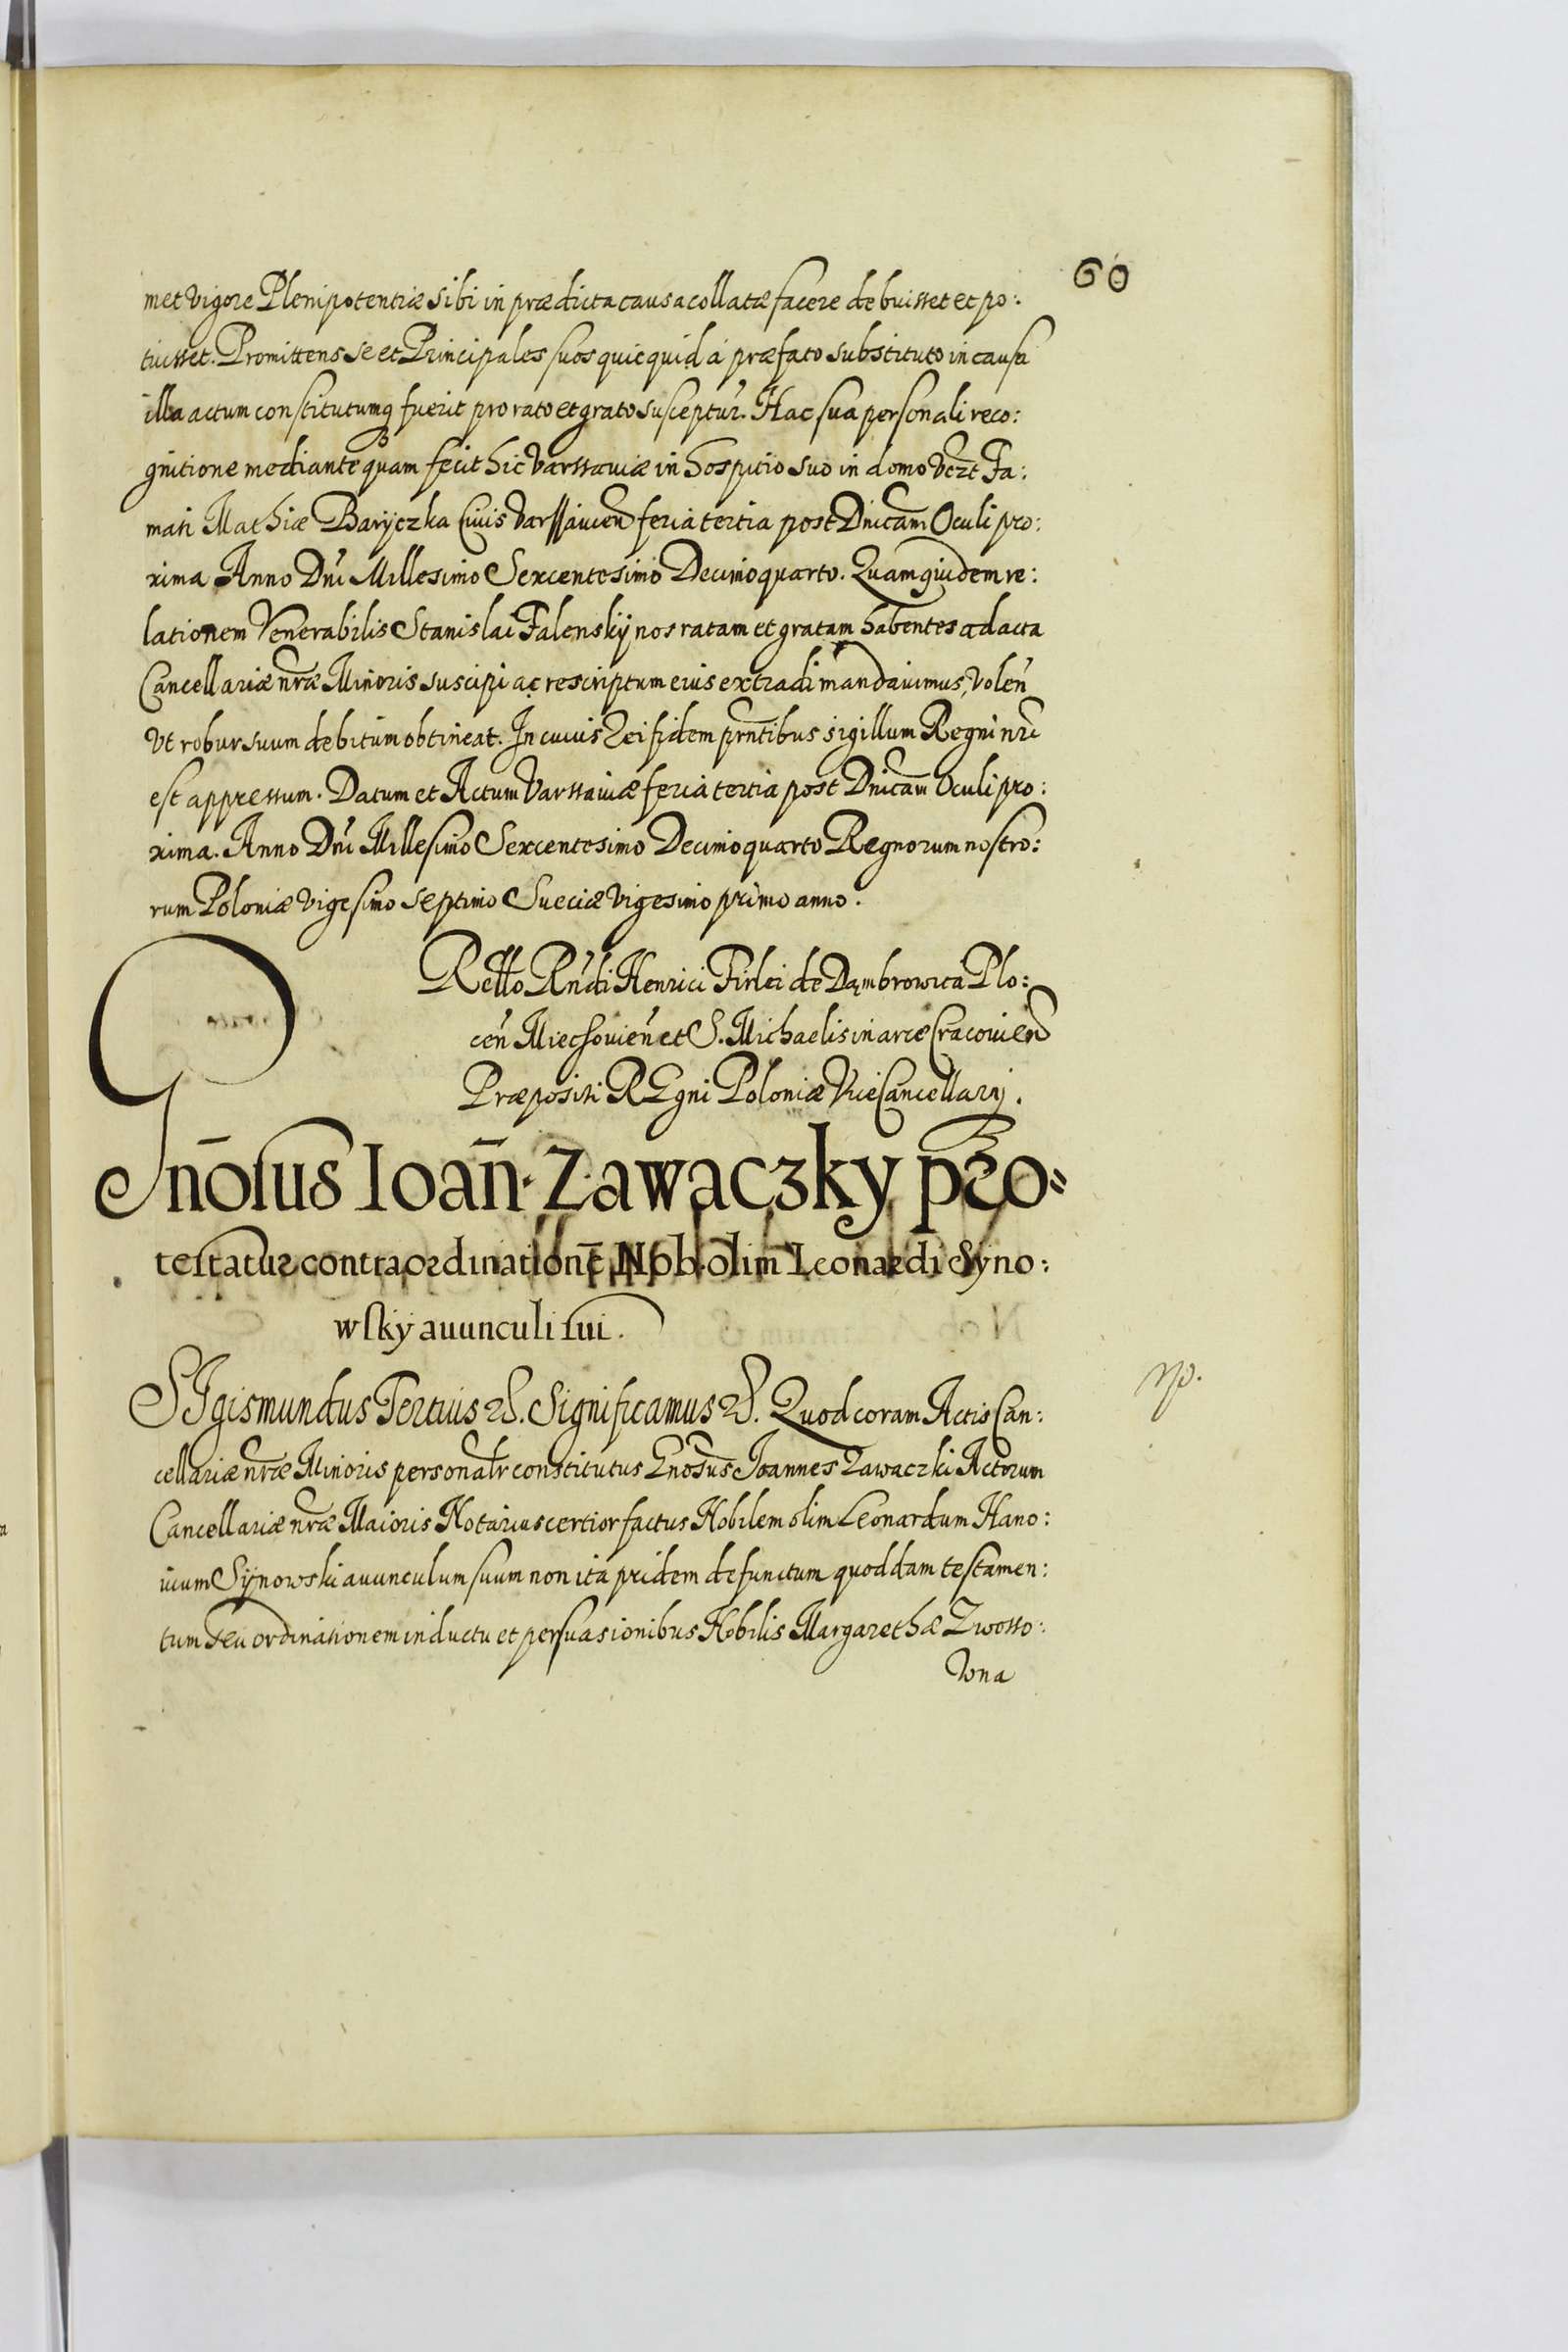 60
met vigore Plenipotentiæ sibi in prædicta causa collatæ facere debuisset et po:
tuisset. Promittens se et Principales suos quicquid à præfato substituto in causa
illa actum constitutumq fuerit pro rato et grato susceptur̃. Hac sua personali reco:
gnitione mediante quam fecit hic Varssaviæ in hospitio suo in domo Vczt Fa:
mati Mathiæ Baryczka Civis Varssavien̄ feria tertia post Dnicam Oculi pro:
xima Anno Dn̄i Millesimo Sexcentesimo Decimoquarto. Quamquidem re:
lationem Venerabilis Stanislai Falenskÿ nos ratam et gratam habentes ad acta
Cancellariæ nr̄æ Minoris suscipi ac rescriptum eius extradi mandavimus, volen̄
Vt robur suum debitum obtineat. In cuius rei fidem prn̄tibus sigillum Regni nr̄i
est appressum. Datum et Actum Varssaviæ feria tertia post Dnicam̄ Oculi pro:
xima. Anno Dn̄i Millesimo Sexcentesimo Decimoquarto Regnorum nostro:
rum Poloniæ vigesimo septimo Sueciæ vigesimo primo anno.
Rello Rn̄di Henrici Firlei de Dąmbrowica Plo:
cen̄ Miechovien̄ et S. Michaelis in arce Cracovien̄
Præpositi REgni Poloniæ ViceCancellarij.
Gn̄osus Ioan̄. Zawaczky pro:
testatur contra ordinationē Nob. olim Leonardi Syno:
wskÿ avunculi sui.
np.
SIgismundus Tertius &. Significamus &. Quod coram Actis Can:
cellariæ nr̄æ Minoris personalr̄ constitutus Gnosus̄ Joannes Zawaczki Actorum
Cancellariæ nr̄æ Maioris Notarius certior factus Nobilem olim Leonardum Hano:
uium Sÿnowski avunculum suum non ita pridem defunctum quoddam testamen:
tum seu ordinationem inductu et persuasionibus Nobilis Margarethæ Zwosso:
wna